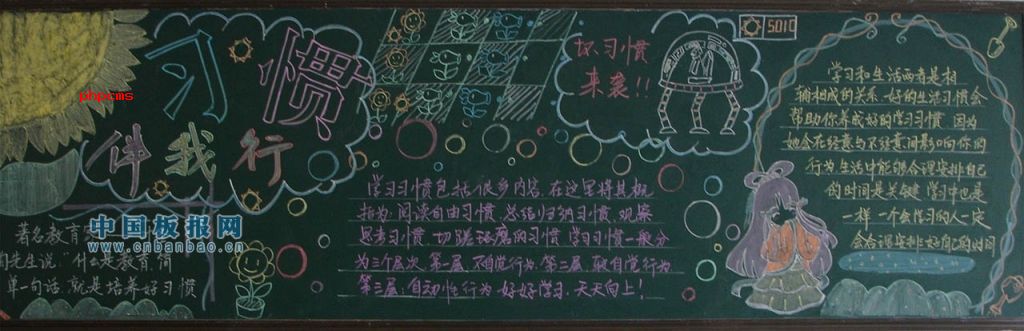 习惯
伴我行
坏习惯
来袭!!
5010
phpcms
中国板报网
www.cnbanbao.cn
著名教育
陶先生说:"什么是教育,简
单一句话,就是培养好习惯
学习习惯包括很多内容,在这里将其概
括为:阅读自由习惯,总结归纳习惯,观察
思考习惯,切蹉琢磨的习惯,学习习惯一般分
为三个层次:第一层:不自觉行为.第二层:较自觉行为
第三层:自动性行为.好好学习,天天向上!
学习和生活两者是相
辅相成的关系.好的生活习惯会
帮助你养成好的学习习惯 因为
她会在经意与不经意间影响你的
行为生活中能够合理安排自己
的时间是关键 学习中也是
一样 一个会学习的人一定
会合理安排好自己的时间